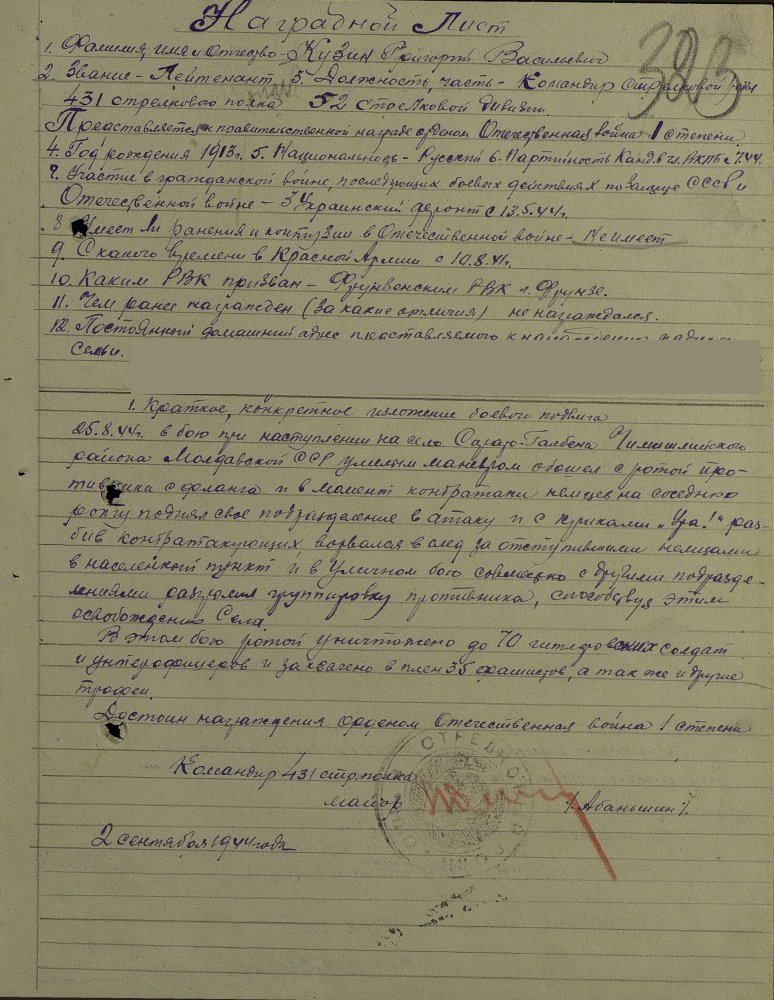 Наградной Лист
323
1. Фамилия, имя и Отчество - Кузин Григорий Васильевич
2. Звание - Лейтенант 3. Должность, часть - Командир стрелковой роты
431 стрелкового полка 52 стрелковой дивизии.
Представляется к правительственной награде орденом Отечественная война 1 степени
4. Год рождения 1913г. 5. Национальность - Русский 6. Партийность Канд. в чл. ВКПБ с 7.44.
7. Участие в гражданской войне, последующих боевых действиях по защите СССР и
Отечественной войне - 3 Украинский фронт с 13.5.44г.
8. Имеет ли ранения и контузии в Отечественной войне - Не имеет
9. С какого времени в Красной Армии с 10.8.41г.
10. Каким РВК призван - Фрунзенским РВК г. Фрунзе.
11. Чем ранее награжден (за какие отличия) не награждался.
12. Постоянный домашний адрес представляемого к награждению
семьи.
1. Краткое, конкретное изложение боевого подвига
25.8.44г. в бою при наступлении на село Сарато-Галбена Чимишлийского
района Молдавской ССР умелым маневром обошел с ротой про-
тивника с фланга и в момент контратаки немцев на соседнюю
роту поднял свое подразделение в атаку и с криками „Ура!" раз-
бив контратакующих, ворвался в след за отступившими немцами
в населенный пункт и в уличном бою совместно с другими подразде-
лениями разгромил группировку противника, способствуя этим
освобождению Села.
В этом бою ротой уничтожено до 70 гитлеровских солдат
и унтерофицеров и захвачено в плен 35 фашистов, а так же и другие
трофеи.
Достоин награждения орденом Отечественная война 1 степени
Командир 431 стр. полка
майор /Абаньшин/.
2 сентября 1944 года